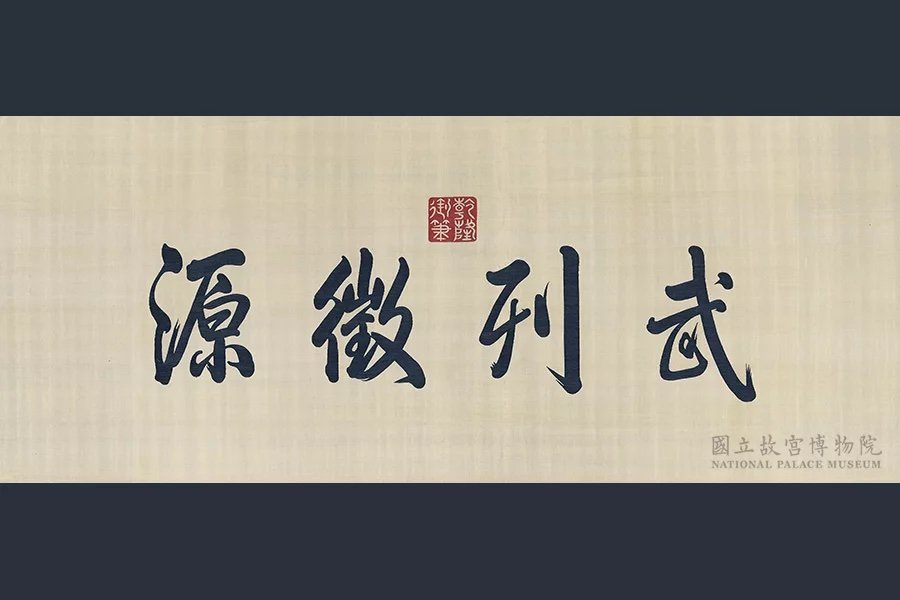 武刊徵源
乾隆御筆
國立故宮博物院
NATIONAL PALACE MUSEUM